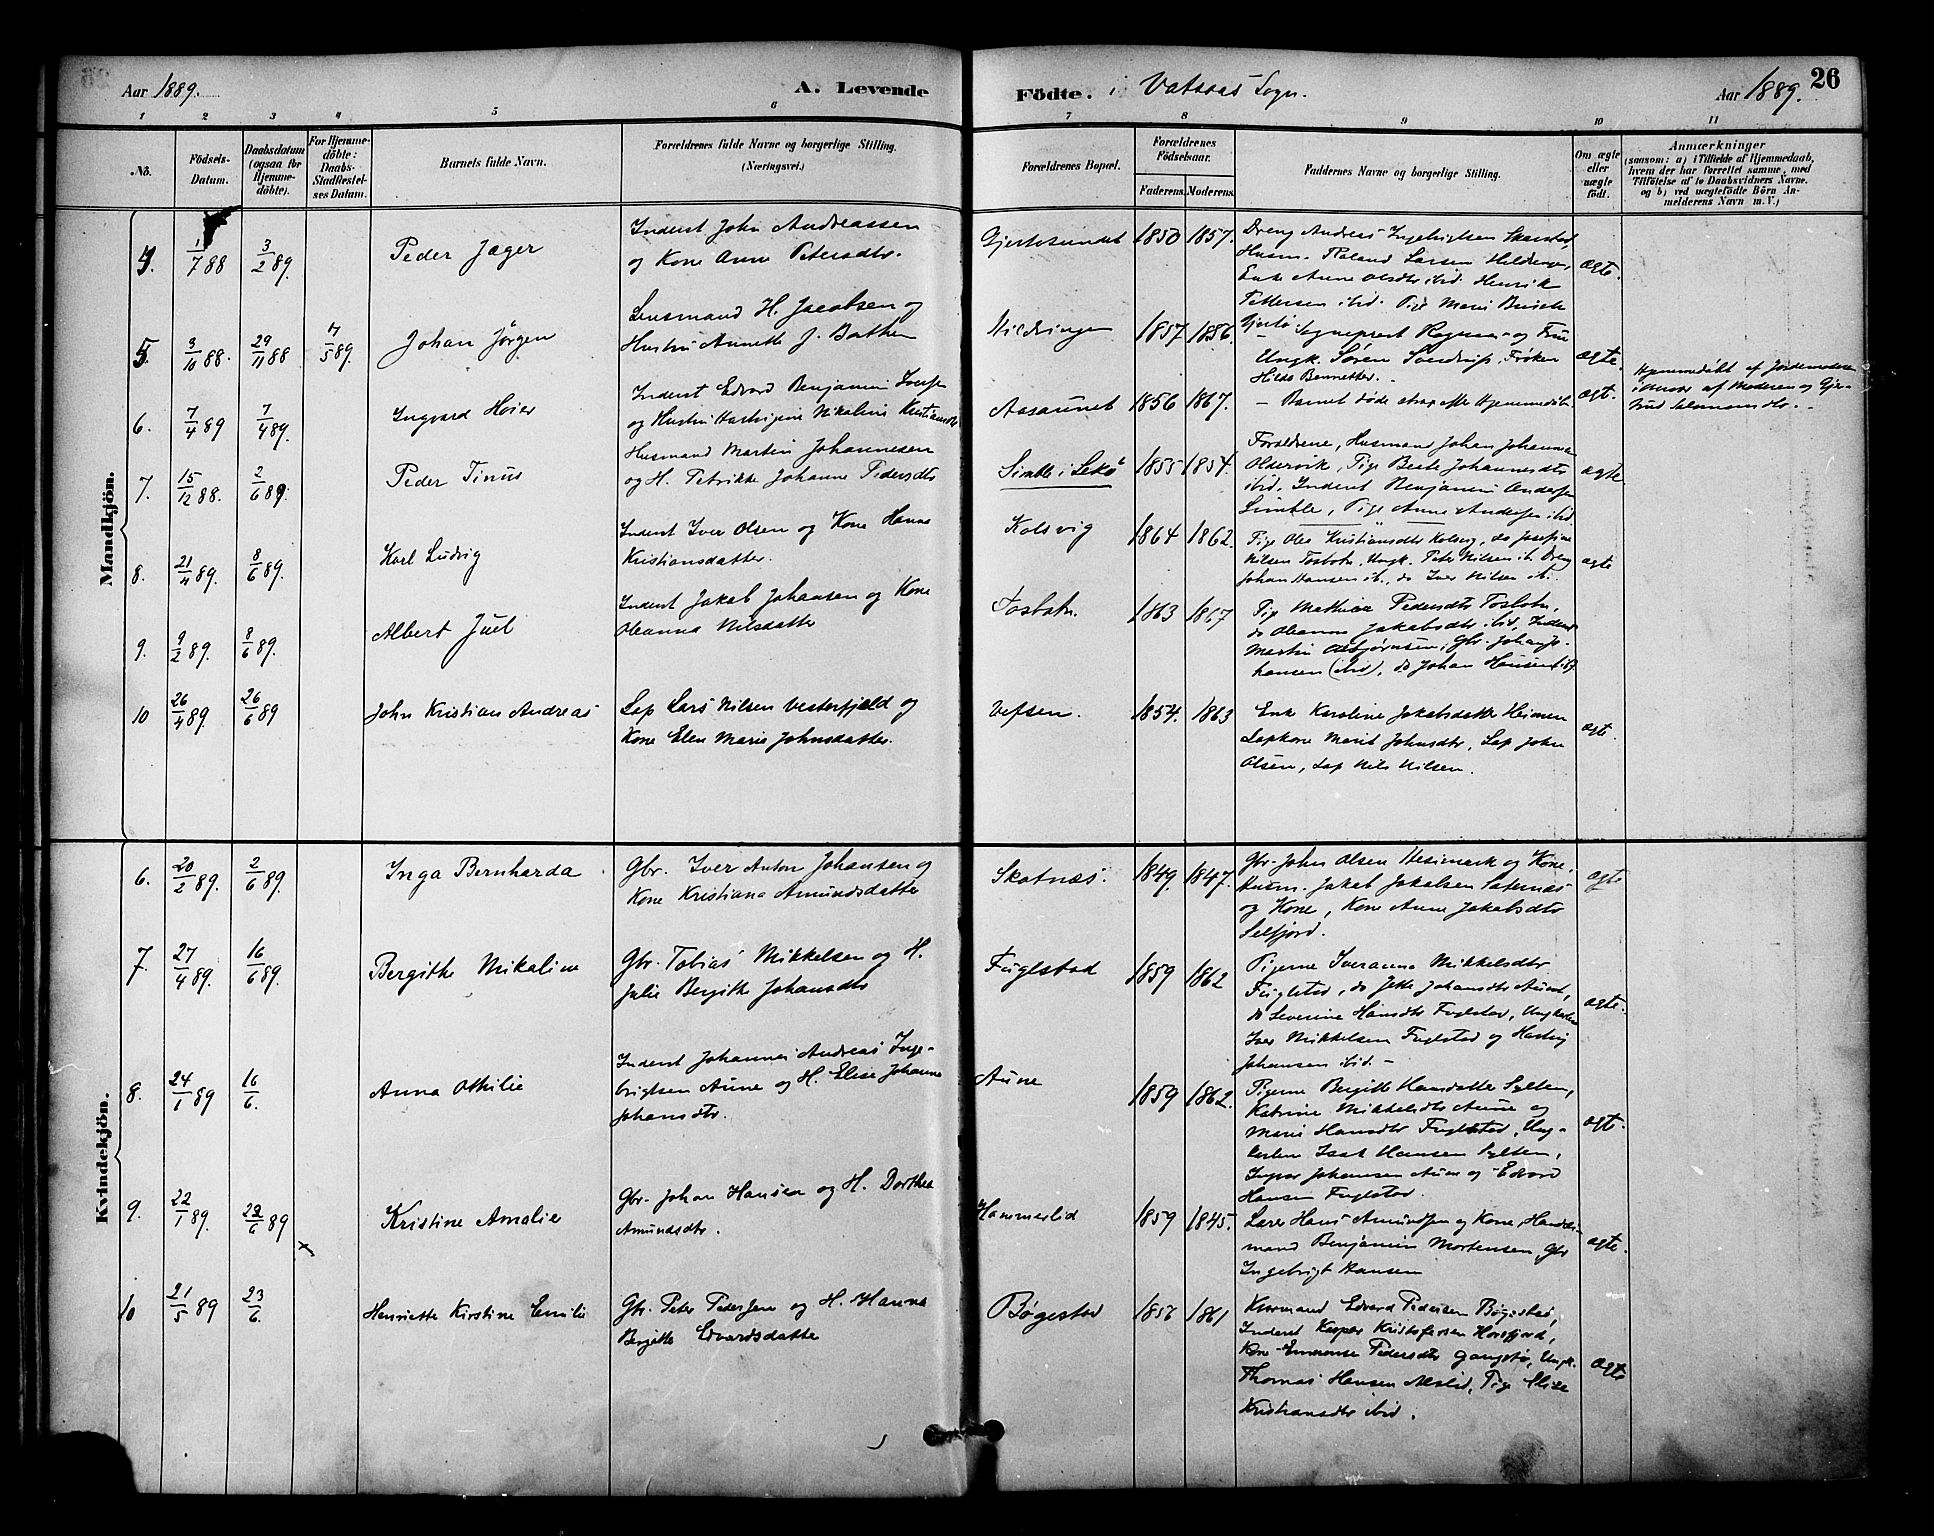 Aar 1889. A. Levende
Födte. i Vatsaas Sogn. Aar 1889. 26
1 2 3 4 5 6 7 8 9 10 11
No. Födsels-Datum. Daabsdatum (ogsaa for Hjemme-döbte). For Hjemme-döbte: Daabs-Stadfæstelses Datum. Barnets fulde Navn. Forældrenes fulde Navne og borgerlige Stilling. (Næringsvei.)
Forældrenes Bopæl. Forældrenes Födselsaar. Faderens. Moderens. Faddernes Navne og borgerlige Stilling. Om ægte eller uægte födt. Anmærkninger (saasom: a) i Tilfælde af Hjemmedaab, hvem der har forrettet samme, med Tilföielse af to Daabsvidners Navne, og b) ved uægtefödte Börn Anmelderens Navn m. V.)
Mandkjön.
4. 1/7 88 3/2 89. Peder Jæger
Inderst John Andreassen
og Kone Anne Petersdtr.
Gjertssundet 1850 1857.
Dreng Andreas Ingebrigtsen Skarstad
Husm. Roland Larsen Hildringen,
Enke Anne Olsdtr ibid. Henrik
Pettersen ibid. Pige Marie
ægte.
5. 3/10 88. 29/11 88 /5 89. Johan Jörgen
Lensmand H. Jacobsen og
Hustru Annette J.
Hildringen 1857 1856.
Sogneprest og Frue
Ungk. Sören Sverdrup, Fröken
Hilda
ægte.
6. 7/4 89 7/4 89. Ingvard Heier
Inderst Edvard Benjamin
og Hustru Hartvigine Nikoline Kristiansdtr
Aasaunet 1856 1867.
– Barnet döde strax efter Hjemmedaab.
ægt.
Hjemmedöbt af Jordemoderen
af Moderen og
Salamonsdtr. –
7. 15/12 88. 2/6 89. Peder Tinus
Husmand Martin Johannesen
og H. Petrikke Johanne Pedersdtr
Simble i Lekö 1855 1854.
Forældrene, Husmand Johan Johannes
Oldervik, Pige Beate Johannesdtr
ibid, Inderst Benjamin Andersen
Simble, Pige Anne Andersen ibid.
ægte
8. 21/4 89. 8/6 89. Karl Ludvig
Inderst Iver Olsen og Kone Hanna
Kristiansdatter.
Kolsvig 1864 1862.
Pige Olea Kristiansdtr Kolsvig, do Josefine
Nilsen Tosbotn, Ungk. Peter Nilsen ib. Dreng
Johan Hansen ib., do Iver Nilsen ib.
ægte
9. 9/2 89. 8/6 89. Albert Juel
Inderst Jakob Johansen og Kone
Oleanna Nilsdatter
Tosbotn. 1863 1867
Pige Mathea Pedersdtr Tosbotn,
do Oleanna Jakobsdtr ibid, Inderst
Martin Asbjörnsen, Gbr. Johan Jo-
hansen (ibid), do Johan Hansen (ib)
10 26/4 89. 26/6 89 John Kristian Andreas
Lap Lars Nilsen Vesterfjeld og
Kone Elen Marie Johnsdatter.
Vefsen. 1854. 1863
Enke Karoline Jakobsdatter Heimen
Lapkone Marit Johnsdtr, Lap John
Olsen, Lap Nils Nilsen.
ægte.
Kvindekjön.
6. 20/2 89. 2/6 89. Inga Bernharda
Gbr. Iver Anton Johansen og
Kone Kristiana Amundsdatter
Skotnæs. 1849. 1847.
Gbr. John Olsen Hesimark og Kone,
Husm. Jakob Jakobsen Saternæs
og Kone, Kone Anne Jakobsdtr
Selfjord.
ægte
7. 27/4 89. 16/6 89. Bergithe Mikaline
Gbr. Tobias Mikkelsen og H.
Julie Bergitte Johansdtr
Fuglstad 1859 1862
Pigerne Iveranna Mikkelsdtr
Fuglstad, do Jette Johansdtr Aune,
do Severine Hansdtr Fuglstad, Ungkarlene
Iver Mikkelsen Fuglstad og Hartvig
Johansen ibid. –
ægte.
8. 24/1 89 16/6. Anna Othilie
Inderst Johannes Andreas Inge-
brigtsen Aune og H. Elise Johanna
Johansdtr.
Aune 1859 1862.
Pigerne Bergitte Hansdatter Sylten,
Katrine Mikkelsdtr Aune og
Marie Hansdtr Fuglstad, Ung-
karlene Isak Hansen Sylten,
Ingvar Johansen Aune og Edvard
Hansen Fuglstad.
ægte.
9. 22/1 89. 22/6 89 Kristine Amalie
Gbr. Johan Hansen og H. Dorthea
Amundsdtr.
Hammerlid 1859 1845.
Lærer Hans Amundsen og Kone, Handels-
mand Benjamin Mortensen, Gbr
Ingebrigt Hansen
ægte.
10 21/5 89 23/6. Henriette Kirstine Emilie
Gbr. Peter Pedersen og H. Hanna
Bergitte Edvardsdatter
Bøgestad 1856 1861
Edvard Pedersen Bøgestad,
Inderst Kasper Kristofersen Horsfjord,
Kone Emmanse Pedersdtr Gangstø, Ungk.
Thomas Hansen Alslid, Pige Elise
Kristiansdtr ibid.
ægte